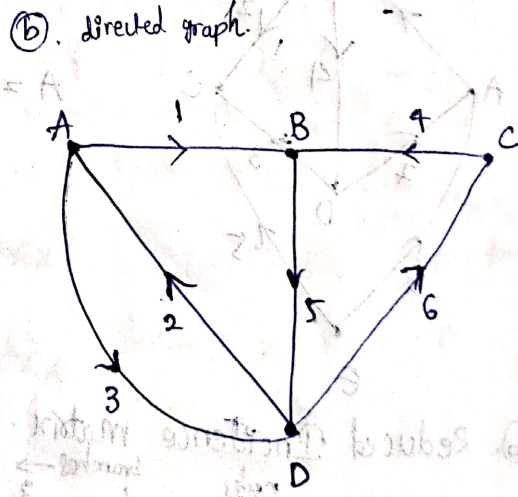 (b). directed graph.
A 1 B 4 C
2 5 6
3
D